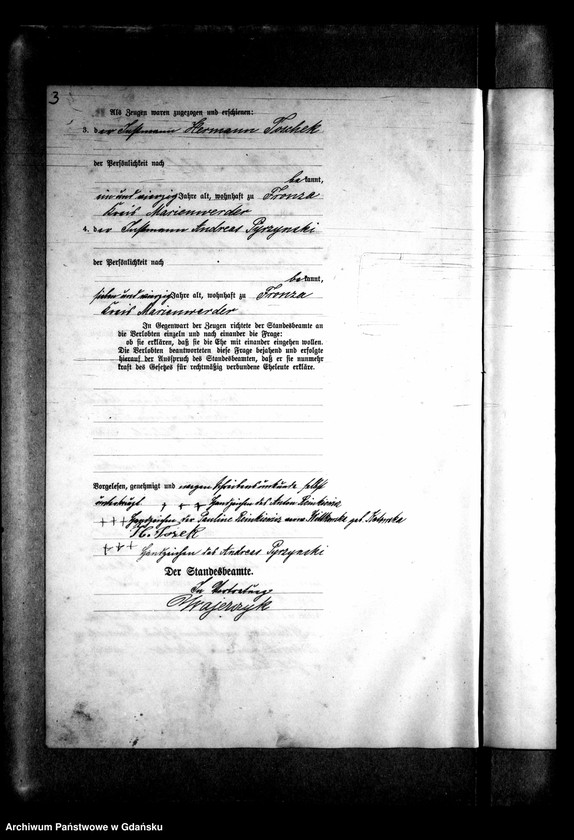 3
Als Zeugen waren zugezogen und erschienen:
3. der Instmann Hermann Toschek
der Persönlichkeit nach
bekannt,
ein und vierzig Jahre alt, wohnhaft zu Fronza
Kreis Marienwerder
4. der Instmann Andreas Pyrzynski
der Persönlichkeit nach
bekannt,
sieben und vierzig Jahre alt, wohnhaft zu Fronza
Kreis Marienwerder
In Gegenwart der Zeugen richtete der Standesbeamte an
die Verlobten einzeln und nach einander die Frage:
ob sie erklären, daß sie die Ehe mit einander eingehen wollen.
Die Verlobten beantworteten diese Frage bejahend und erfolgte
hierauf der Ausspruch des Standesbeamten, daß er sie nunmehr
kraft des Gesetzes für rechtmäßig verbundene Eheleute erkläre.
Vorgelesen, genehmigt und wegen Schreibensunkunde
+ + + Handzeichen des Anton
+++ Handzeichen der Pauline geb.
H. Tozek
+++ Handzeichen des Andreas Pyrzynski
Der Standesbeamte.
In Vertretung
Majerczyk
Archiwum Państwowe w Gdańsku